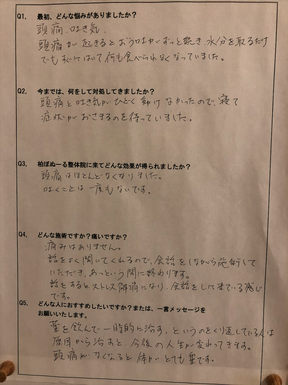 Q1、最初、どんな悩みがありましたか？
頭痛、吐き気、
頭痛が起きるとおう吐がずっと続き 水分を取るだけ
でも 何も食べられなくなっていました。
Q2、今までは、何をして対処してきましたか？
頭痛と吐き気がひどく動けなかったので、寝て
症状がおさまるのを待っていました。
Q3、柏ぽぬーる整体院に来てどんな効果が得られましたか？
頭痛はほとんどなくなりました。
はくことは一度もないです。
Q4、どんな施術ですか？痛いですか？
痛みはありません。
話をよく聞いてくれるので、会話をしながら施術して
いただき、あっという間に終わります。
話をするとストレス解消になり、会話をしに来ている感じ
です。
Q5、どんな人におすすめしたいですか？または、一言メッセージを
お願いいたします。
薬を飲んで一時的に治す、というのをくり返している人は
原因から治すと、今後の人生が変わってきます。
頭痛がなくなると体がとても楽です。